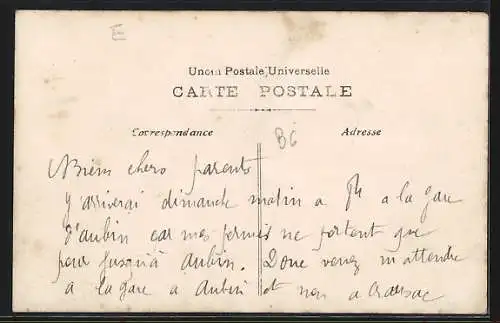 E
Union Postale Universelle
CARTE POSTALE
Correspondance
Adresse
BC
Biens chers parents
J'arriverai dimanche matin a 9h a la gare
d'aubin car mes permis ne portent que
pour jusqu'à Aubin. Donc venez m'attendre
a la gare a Aubin et non a Cransac